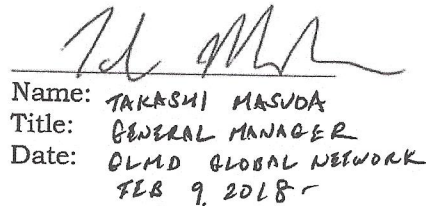 Name: TAKASHI MASUDA
Title: GENERAL MANAGER
Date: GLMD GLOBAL NETWORK
FEB 9, 2018